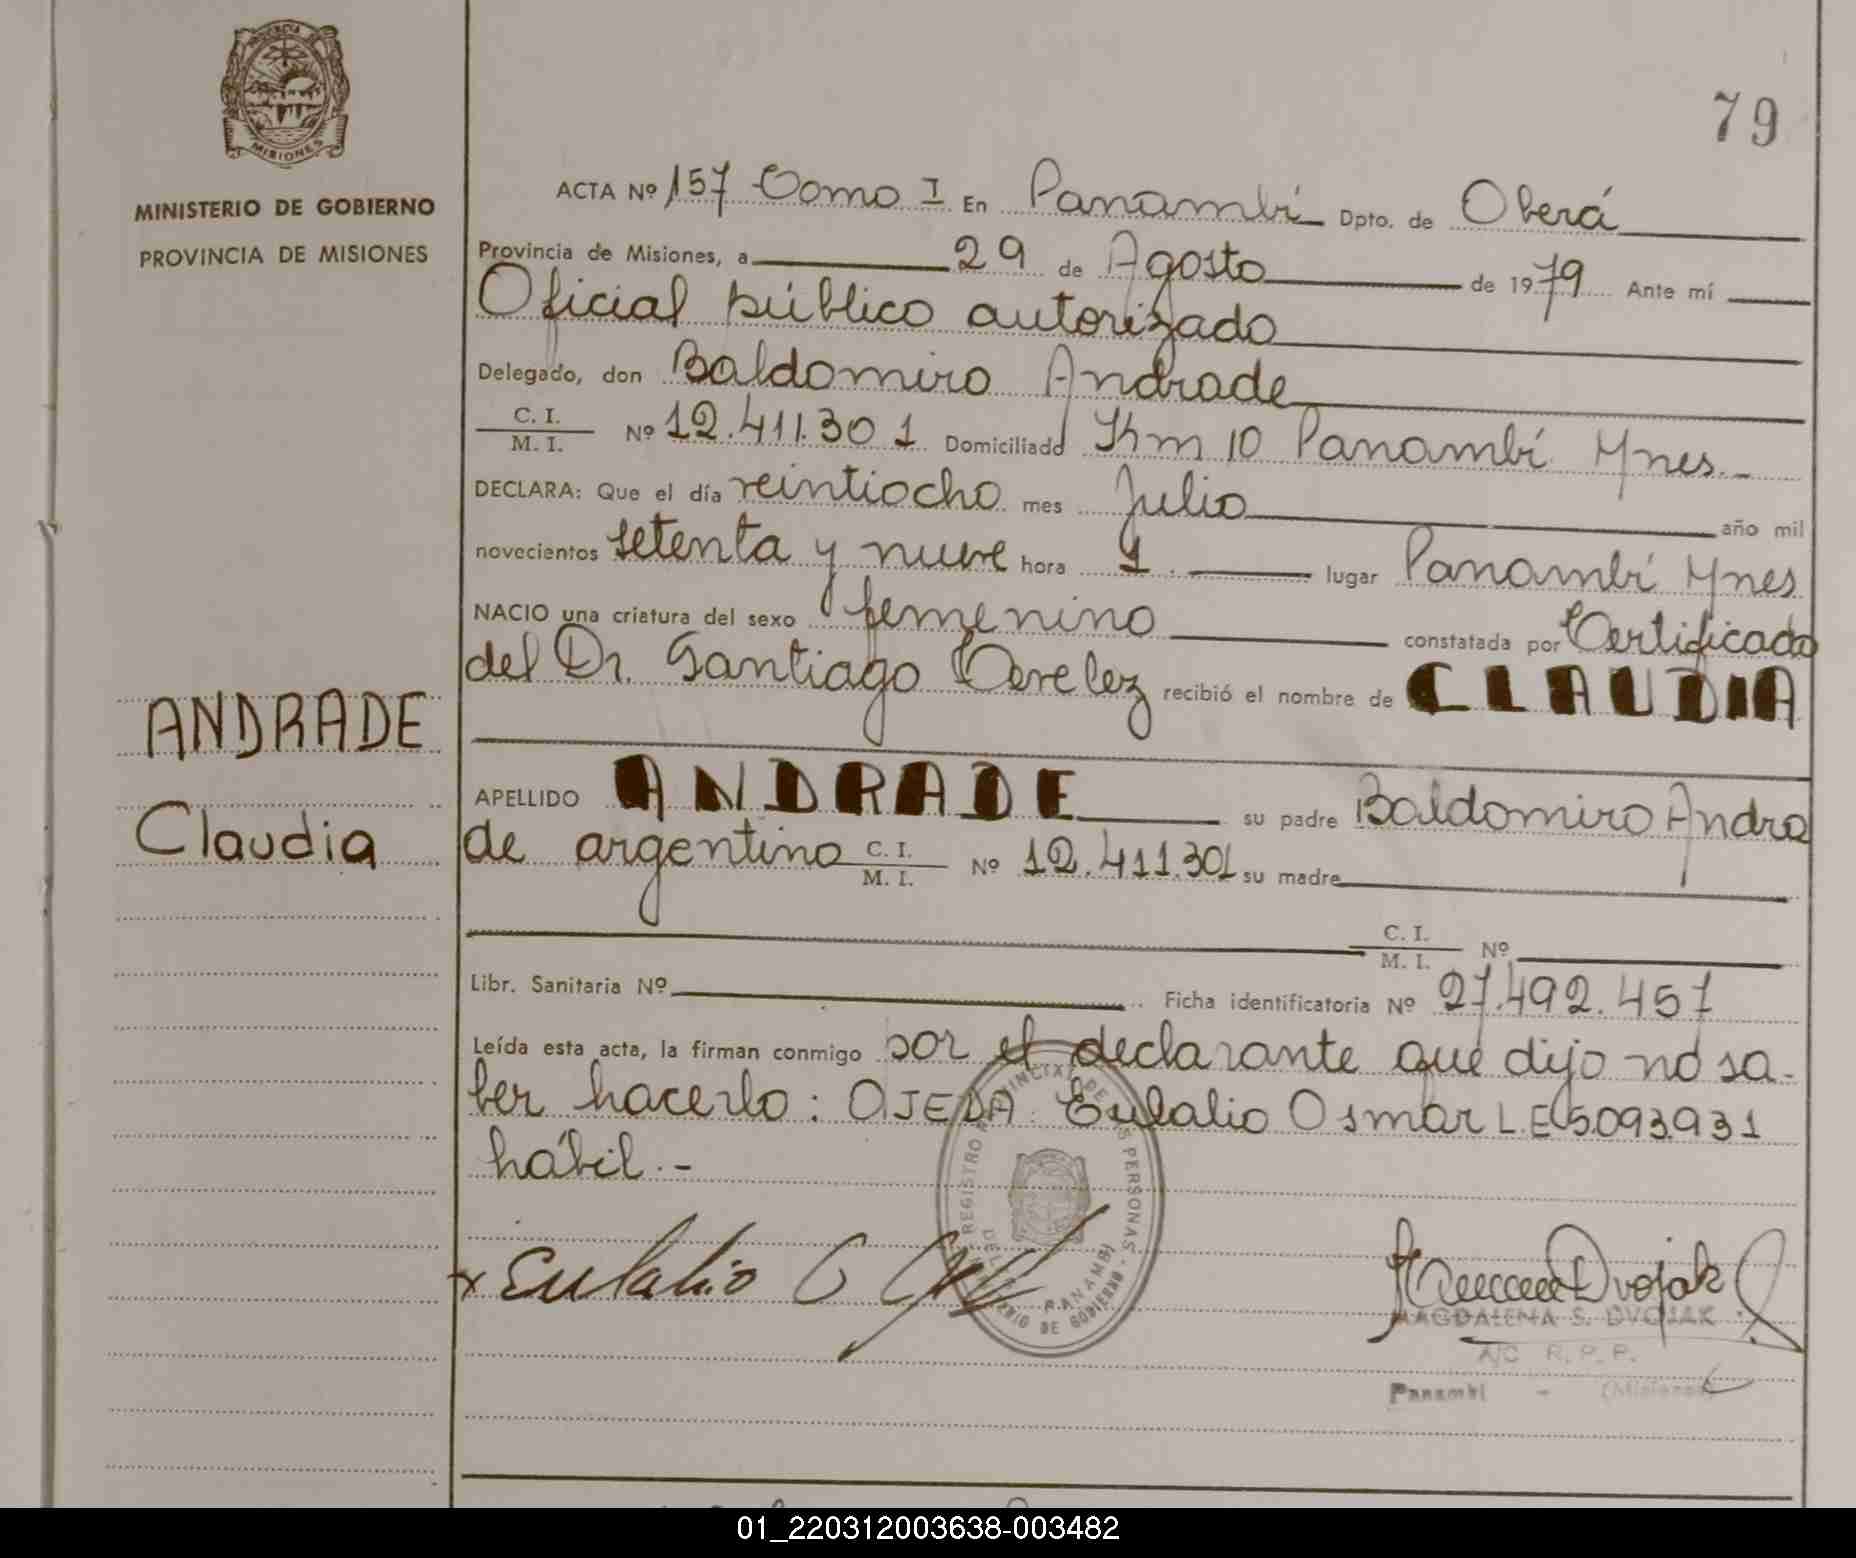 PROVINCIA DE
MISIONES
MINISTERIO DE GOBIERNO
PROVINCIA DE MISIONES
79
ACTA Nº 157 Tomo I En Panambí Dpto. de Oberá
Provincia de Misiones, a 29 de Agosto de 1979 Ante mí
Oficial público autorizado
Delegado, don Baldomiro Andrade
C. I.
M. I. Nº 12.411.301 Domiciliado Km 10 Panambí Mnes.-
DECLARA: Que el día veintiocho mes Julio año mil
novecientos setenta y nueve hora 1. lugar Panambí Mnes
NACIO una criatura del sexo femenino constatada por Certificado
del Dr. Santiago recibió el nombre de CLAUDIA
ANDRADE
Claudia
APELLIDO ANDRADE su padre Baldomiro Andra
de argentino C. I.
M. I. Nº 12.411.301 su madre
C. I.
M. I. Nº
Libr. Sanitaria Nº Ficha identificatoria Nº 27.492.457
Leída esta acta, la firman conmigo por el declarante que dijo no sa-
ber hacerlo: OJEDA Eulalio Osmar L.E 5.093.931
hábil.-
REGISTRO PROVINCIAL DE LAS PERSONAS
PANAMBI
MINISTERIO DE GOBIERNO
x Eulalio O
Dvojak
MAGDALENA S. DVOJAK
A/C R. P. P.
Panambí - (Misiones)
01_220312003638-003482